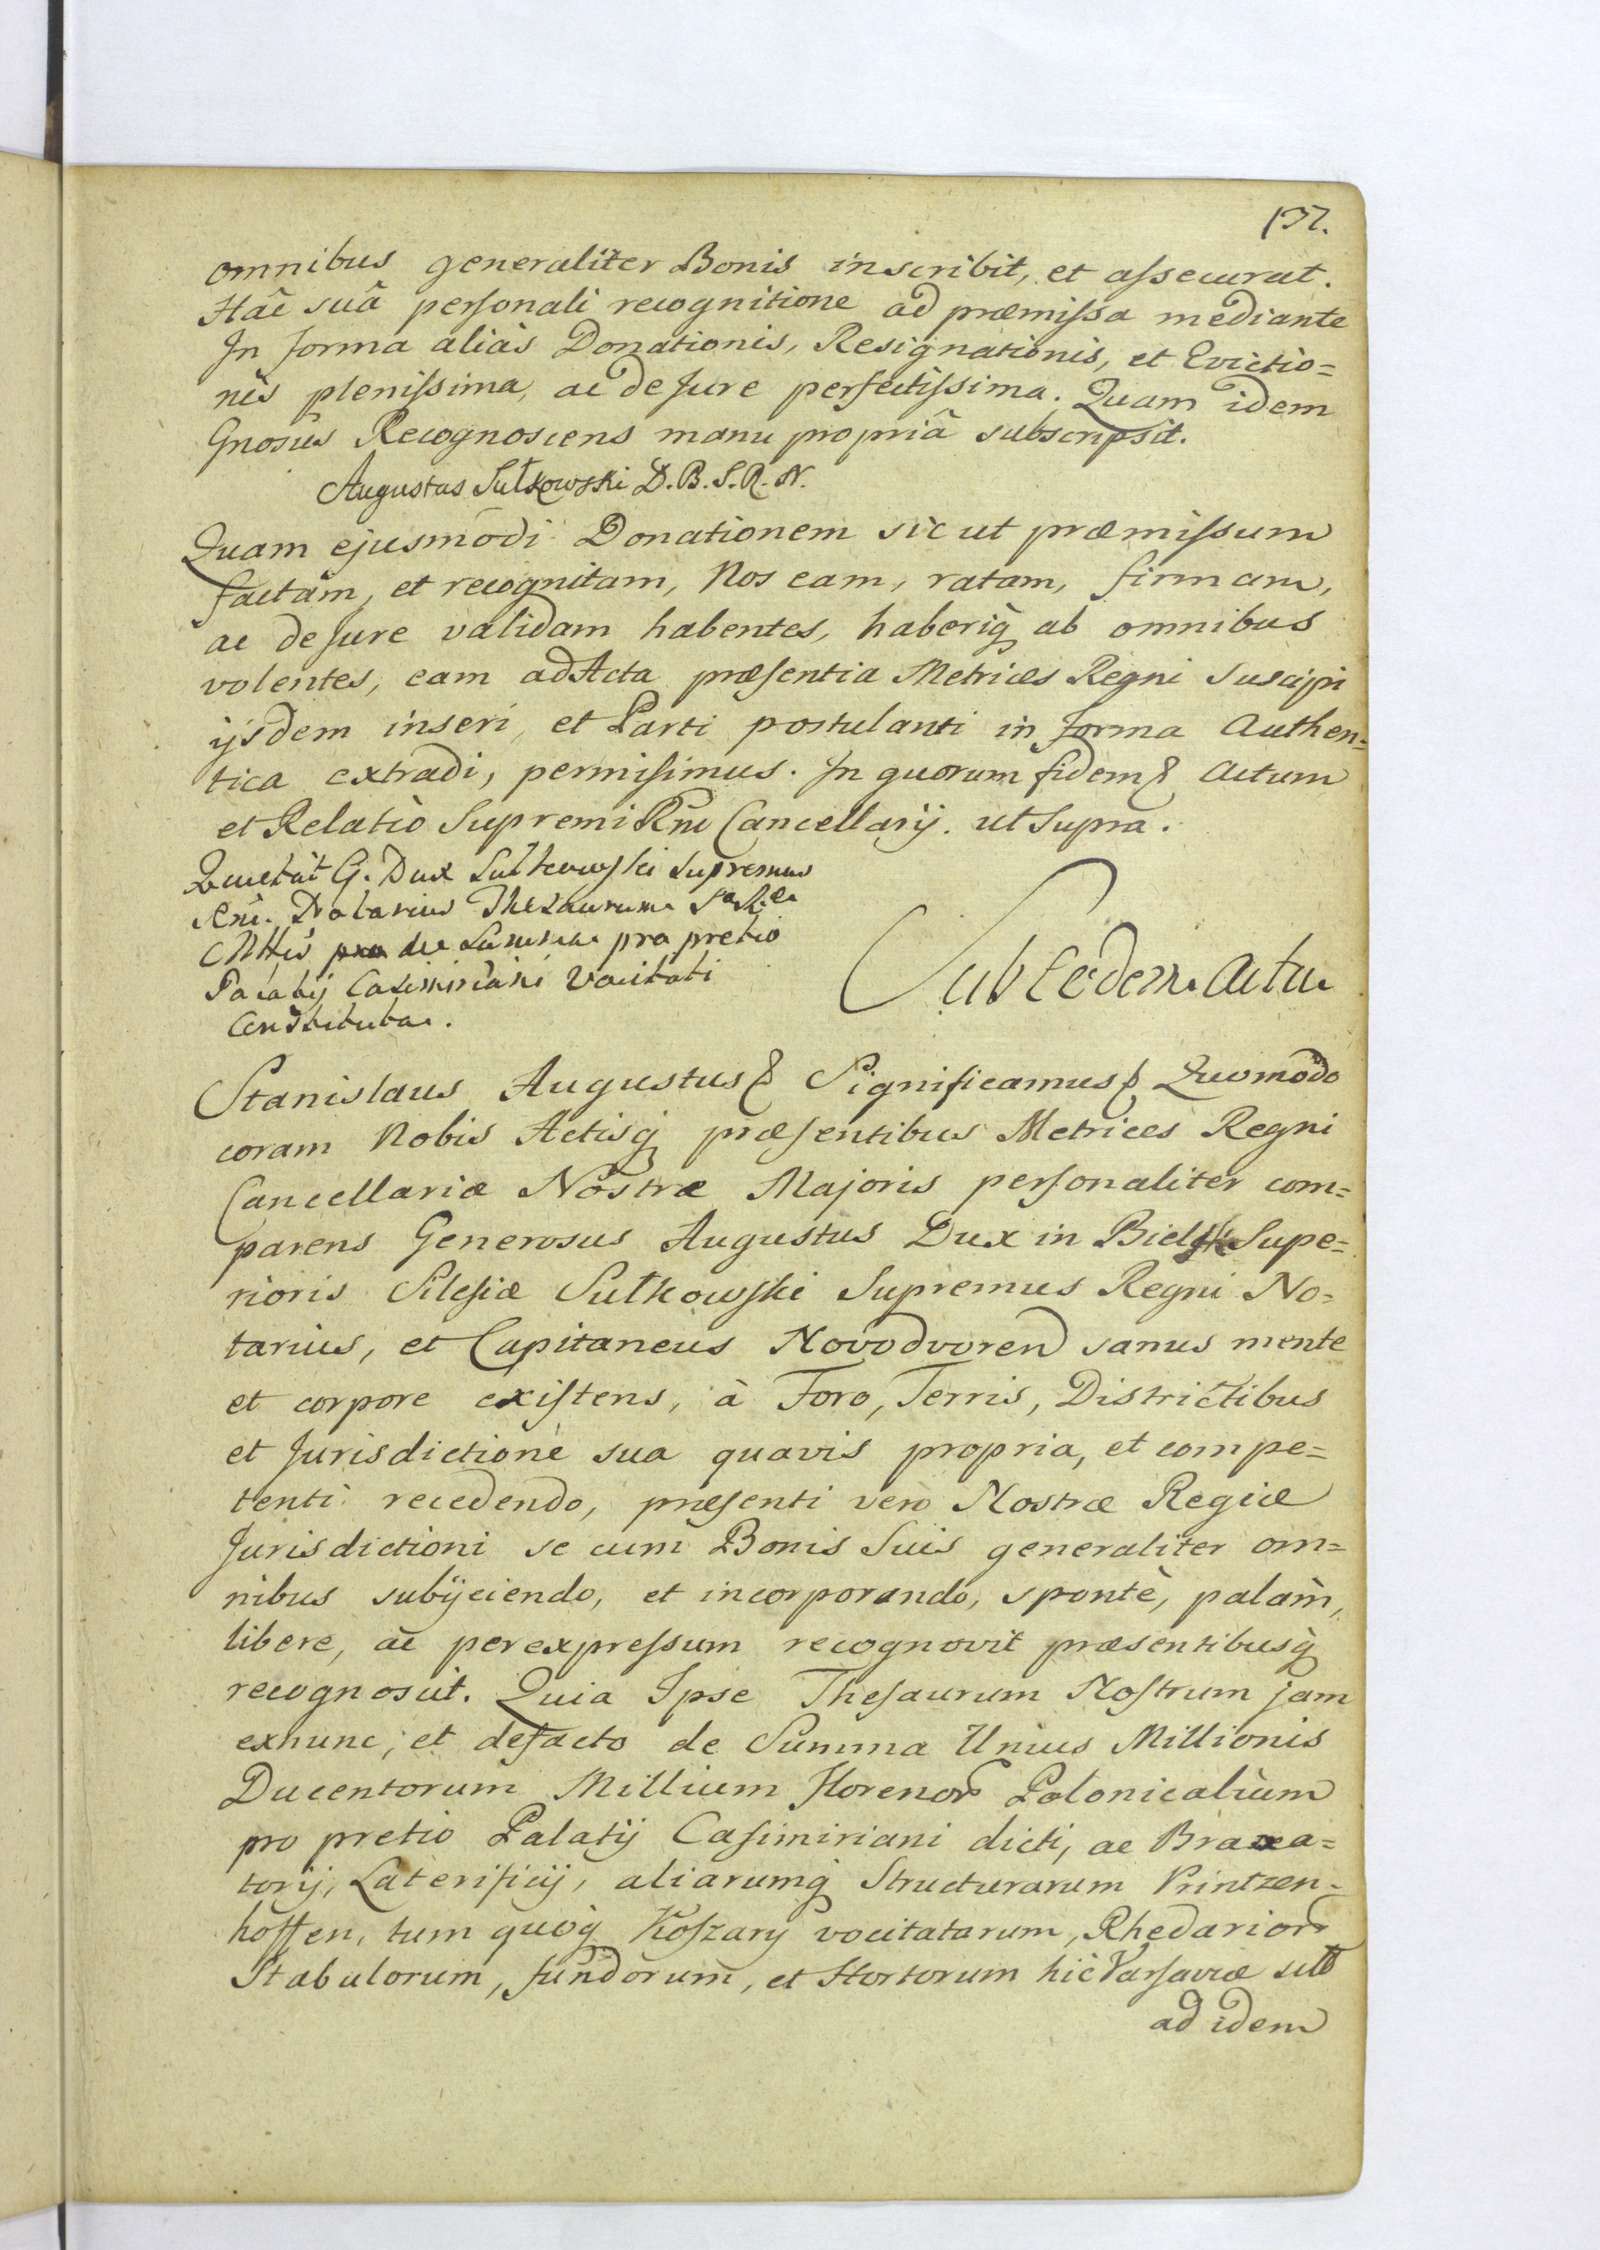 137.
omnibus generaliter Bonis inscribit, et assecurat.
Hâc suâ personali recognitione ad præmissa mediante
In forma aliàs Donationis, Resignationis, et Evictio=
nis plenissima, ac de Jure perfectissima. Quam idem
Gnosus Recognoscens manu propriâ subscripsit.
Augustus Sułkowski D. B. S. R. N.
Quam ejusmodi Donationem sic ut præmissum
factam, et recognitam, Nos eam, ratam, firmam,
ac de Jure validam habentes, haberiq̀ ab omnibus
volentes, eam ad Acta præsentia Metrices Regni Suscipi
ijsdem inseri, et Parti postulanti in forma Authen=
tica extradi, permisimus. In quorum fidem & Actum
et Relatio Supremi Rni Cancellarij. ut Supra.
Quietat G. Dux Sułkowski Supremus
Rni. Notarius Thesaurum
de Summa pro pretio
Palatij Casimiriani Vocitati
Constituta.
Sub Eodem Actu
Stanislaus Augustus & Significamus & Quomodo
coram Nobis Actisq præsentibus Metrices Regni
Cancellariæ Nostræ Majoris personaliter com=
parens Generosus Augustus Dux in Bielsk Supe=
rioris Silesiæ Sułkowski Supremus Regni No=
tarius, et Capitaneus Novodvoren sanus mente
et corpore existens, à Foro, Terris, Districtibus
et Jurisdictione sua quavis propria, et compe=
tenti recedendo, præsenti vero Nostræ Regiæ
Jurisdictioni se cum Bonis Suis generaliter om=
nibus subijciendo, et incorporando, spontè, palàm,
libere, ac per expressum recognovit præsentibusq̀
recognoscit. Quia Ipse Thesaurum Nostrum jam
exnunc, et defacto de Summa Unius Millionis
Ducentorum Millium Florenor Polonicalium
pro pretio Palatij Casimiriani dicti, ac Braxa=
torij, Laterificij, aliarumq̀ Structurarum Printzen=
hoffen, tum quoq̀ Koszary vocitatarum, Rhedarior
Stabulorum, fundorum, et Hortorum hic Varsaviæ sit
ad idem